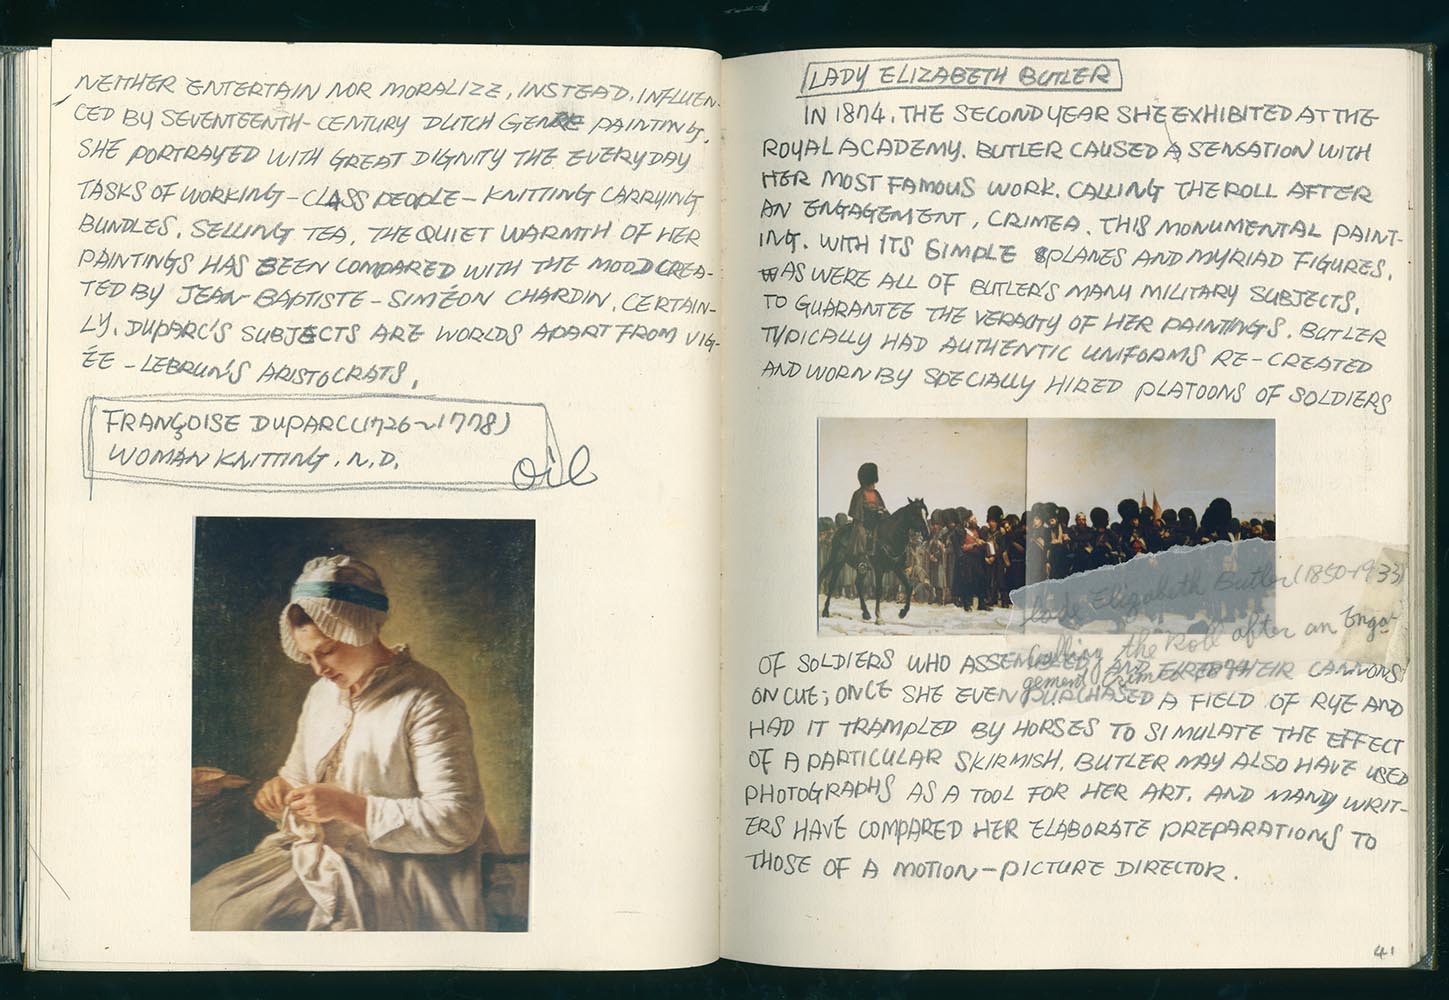 NEITHER ENTERTAIN NOR MORALIZE, INSTEAD, INFLUEN-
CED BY SEVENTEENTH-CENTURY DUTCH GENRE PAINTING,
SHE PORTRAYED WITH GREAT DIGNITY THE EVERYDAY
TASKS OF WORKING-CLASS PEOPLE - KNITTING CARRYING
BUNDLES, SELLING TEA, THE QUIET WARMTH OF HER
PAINTINGS HAS BEEN COMPARED WITH THE MOOD CREA-
TED BY JEAN-BAPTISTE-SIMÉON CHARDIN, CERTAIN-
LY, DUPARC'S SUBJECTS ARE WORLDS APART FROM VIG-
ÉE-LEBRUN'S ARISTOCRATS.
FRANÇOISE DUPARC (1726~1778)
WOMAN KNITTING, N.D.
oil
LADY ELIZABETH BUTLER
IN 1874, THE SECOND YEAR SHE EXHIBITED AT THE
ROYAL ACADEMY, BUTLER CAUSED A SENSATION WITH
HER MOST FAMOUS WORK, CALLING THE ROLL AFTER
AN ENGAGEMENT, CRIMEA. THIS MONUMENTAL PAINT-
ING, WITH ITS SIMPLE PLANES AND MYRIAD FIGURES,
WAS WERE ALL OF BUTLER'S MANY MILITARY SUBJECTS,
TO GUARANTEE THE VERACITY OF HER PAINTINGS, BUTLER
TYPICALLY HAD AUTHENTIC UNIFORMS RE-CREATED
AND WORN BY SPECIALLY HIRED PLATOONS OF SOLDIERS
Lade Elizabeth Butler (1850-1933)
Calling the Roll after an Enga-
gement, Crimea 1874
OF SOLDIERS WHO ASSEMBLED AND FIRED THEIR CANNONS
ON CUE; ONCE SHE EVEN PURCHASED A FIELD OF RYE AND
HAD IT TRAMPLED BY HORSES TO SIMULATE THE EFFECT
OF A PARTICULAR SKIRMISH. BUTLER MAY ALSO HAVE USED
PHOTOGRAPHS AS A TOOL FOR HER ART, AND MANY WRIT-
ERS HAVE COMPARED HER ELABORATE PREPARATIONS TO
THOSE OF A MOTION-PICTURE DIRECTOR.
41